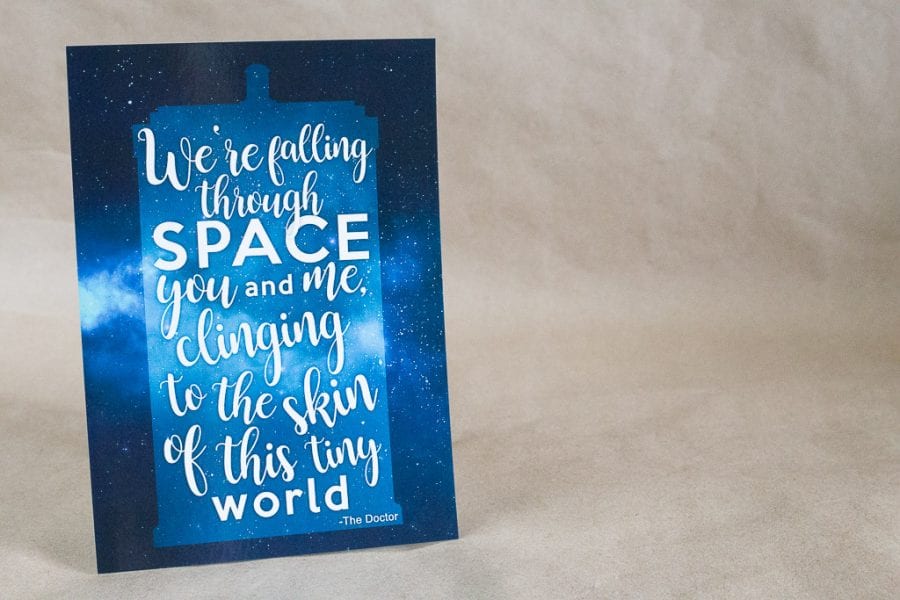 We're falling
through
SPACE
you and me,
clinging
to the skin
of this tiny
world
-The Doctor